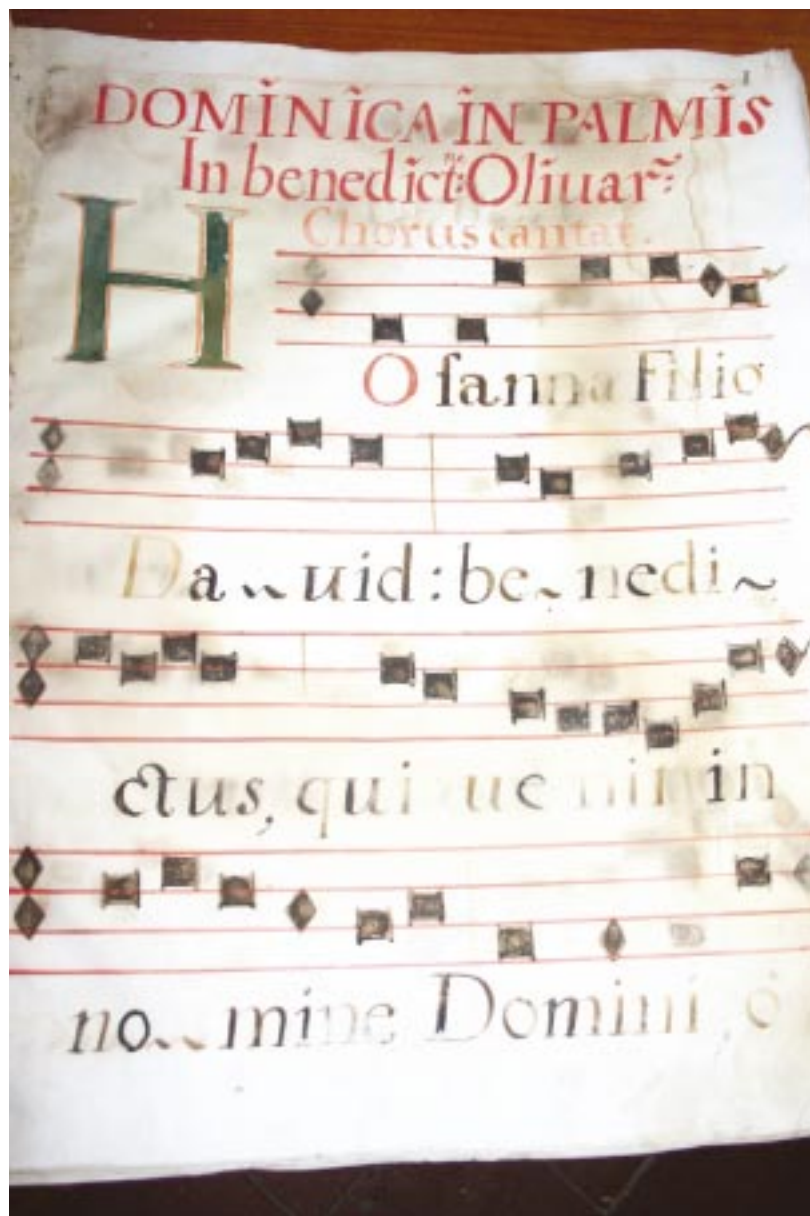 1
DOMINICA IN PALMIS
In benedict: Oliuar:
Chorus cantat.
HOsanna Filio
Da~~uid: be~nedi~
ctus, qui uenit in
no~~mine Domini, ó